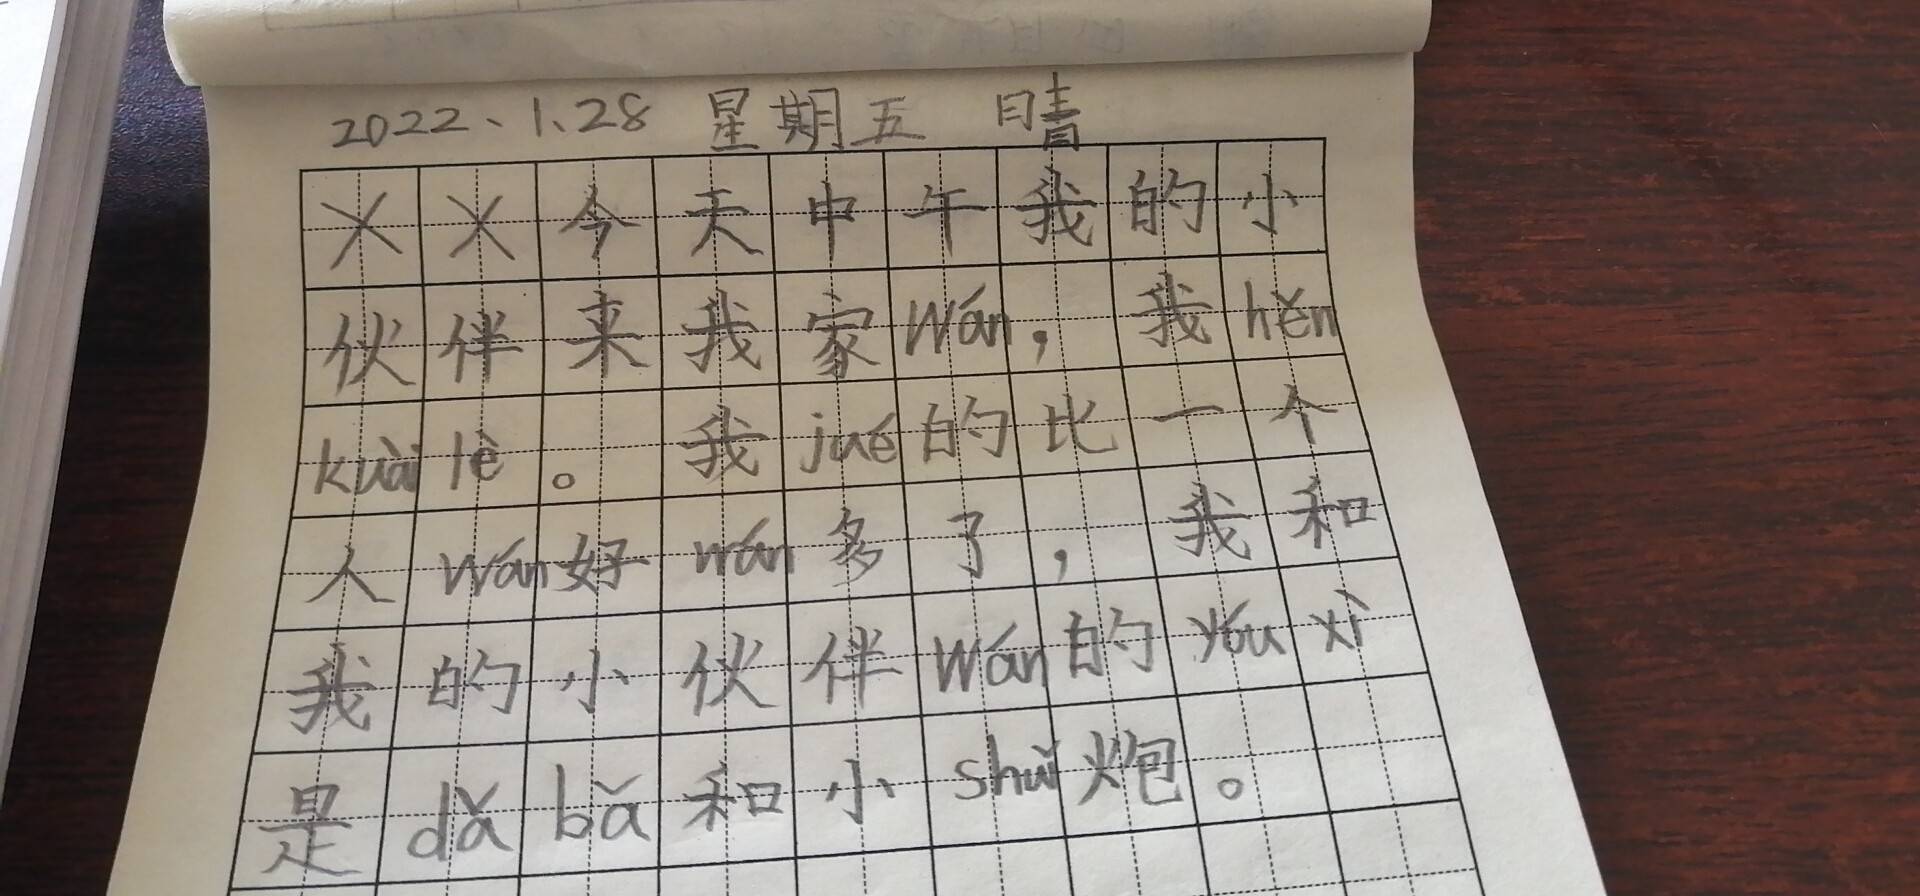 2022、1、28 星期五 晴
××今天中午我的小
伙伴来我家wán，我hěn
kuài lè。我jué的比一个
人wán好wán多了，我和
我的小伙伴wán的yóu xì
是dǎ bǎ和小shuǐ炮。